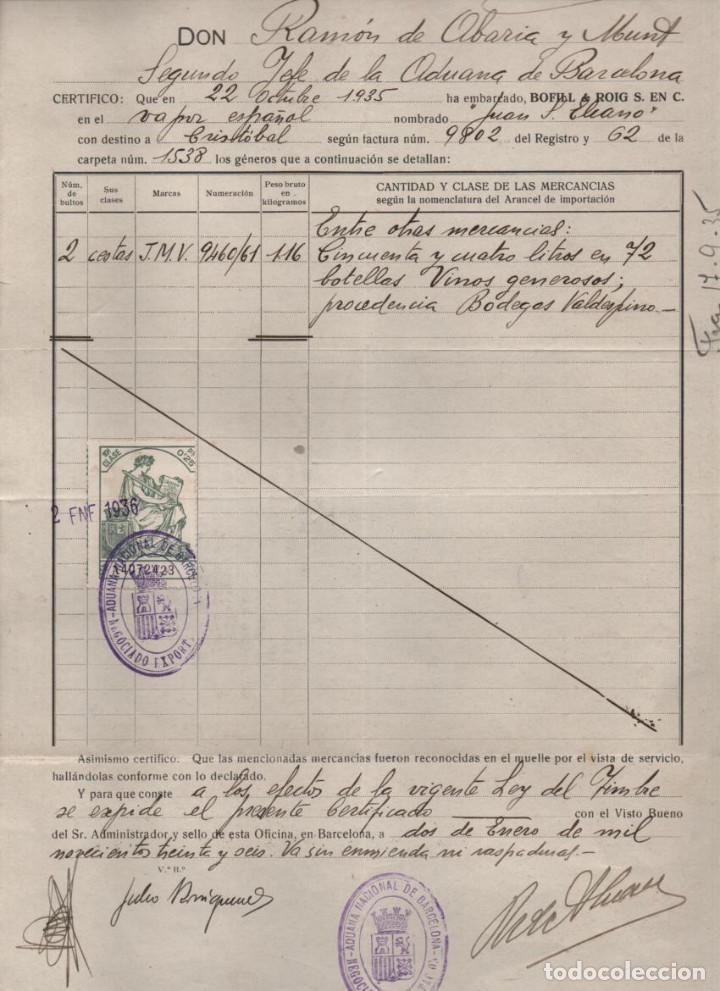 DON Ramón de Abaria y Munt
Segundo Jefe de la Aduana de Barcelona
CERTIFICO: Que en 22 Octubre 1935 ha embarcado, BOFILL & ROIG S. EN C.
en el vapor español nombrado "Juan S. Elcano"
con destino a Cristóbal según factura núm. 9802 del Registro y 62 de la
carpeta núm. 1538 los géneros que a continuación se detallan:
Núm. de bultos
Sus clases
Marcas
Numeración
Peso bruto en kilogramos
CANTIDAD Y CLASE DE LAS MERCANCIAS
según la nomenclatura del Arancel de importación
Entre otras mercancias:
2 cestas J.M.V. 9460/61 116 Cincuenta y cuatro litros en 72
botellas Vinos generosos;
procedencia Bodegas Valdespino.—
17-9-35
10ª CLASE
0'25
2 ENE 1936
14072423
ADUANA NACIONAL DE BARCELONA
NEGOCIADO EXPORT.
Asimismo certifico: Que las mencionadas mercancias fueron reconocidas en el muelle por el vista de servicio,
hallándolas conforme con lo declarado.
Y para que conste a los efectos de la vigente Ley del Timbre
se expide el presente Certificado con el Visto Bueno
del Sr. Administrador y sello de esta Oficina, en Barcelona, a dos de Enero de mil
novecientos treinta y seis. Va sin enmienda ni raspaduras.—
V.º B.º
Julio
ADUANA NACIONAL DE BARCELONA
todocoleccion.net